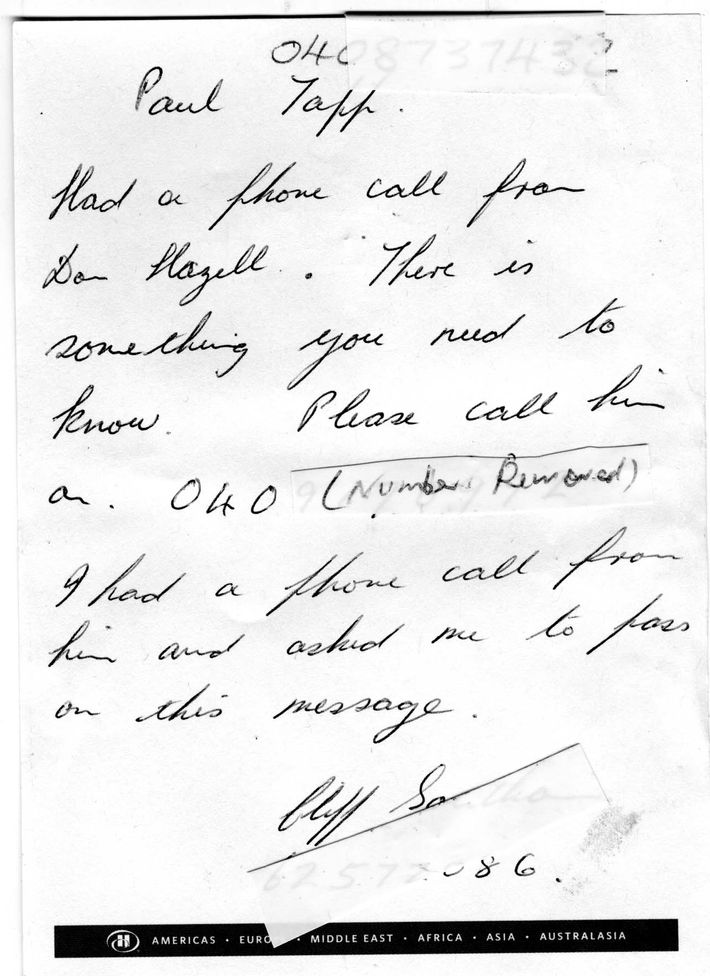 040
Paul Tapp.
Had a phone call from
Don Hazell. There is
something you need to
know. Please call him
on. 040 (Number Removed)
I had a phone call from
him and asked me to pass
on this message.
Cliff
86.
AMERICAS · EURO · MIDDLE EAST · AFRICA · ASIA · AUSTRALASIA